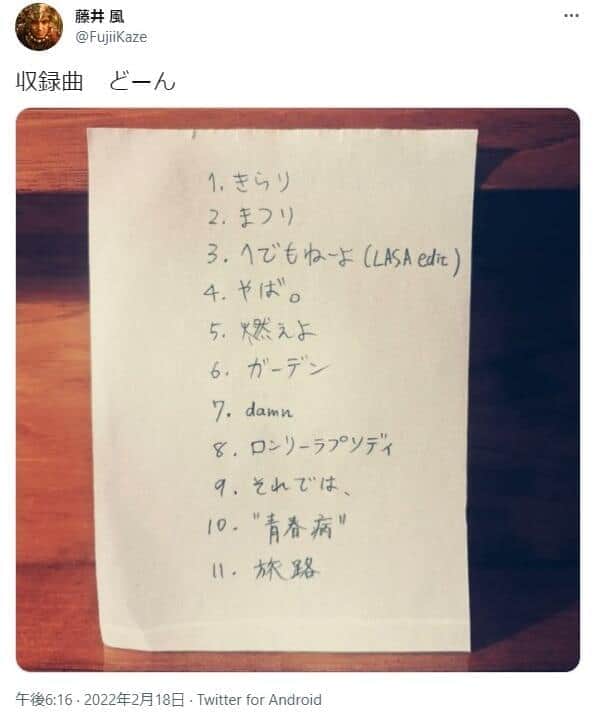 藤井 風
@FujiiKaze
収録曲　どーん
1. きらり
2. まつり
3. へでもねーよ (LASA edit)
4. やば。
5. 燃えよ
6. ガーデン
7. damn
8. ロンリーラプソディ
9. それでは、
10. "青春病"
11. 旅路
午後6:16 · 2022年2月18日 · Twitter for Android